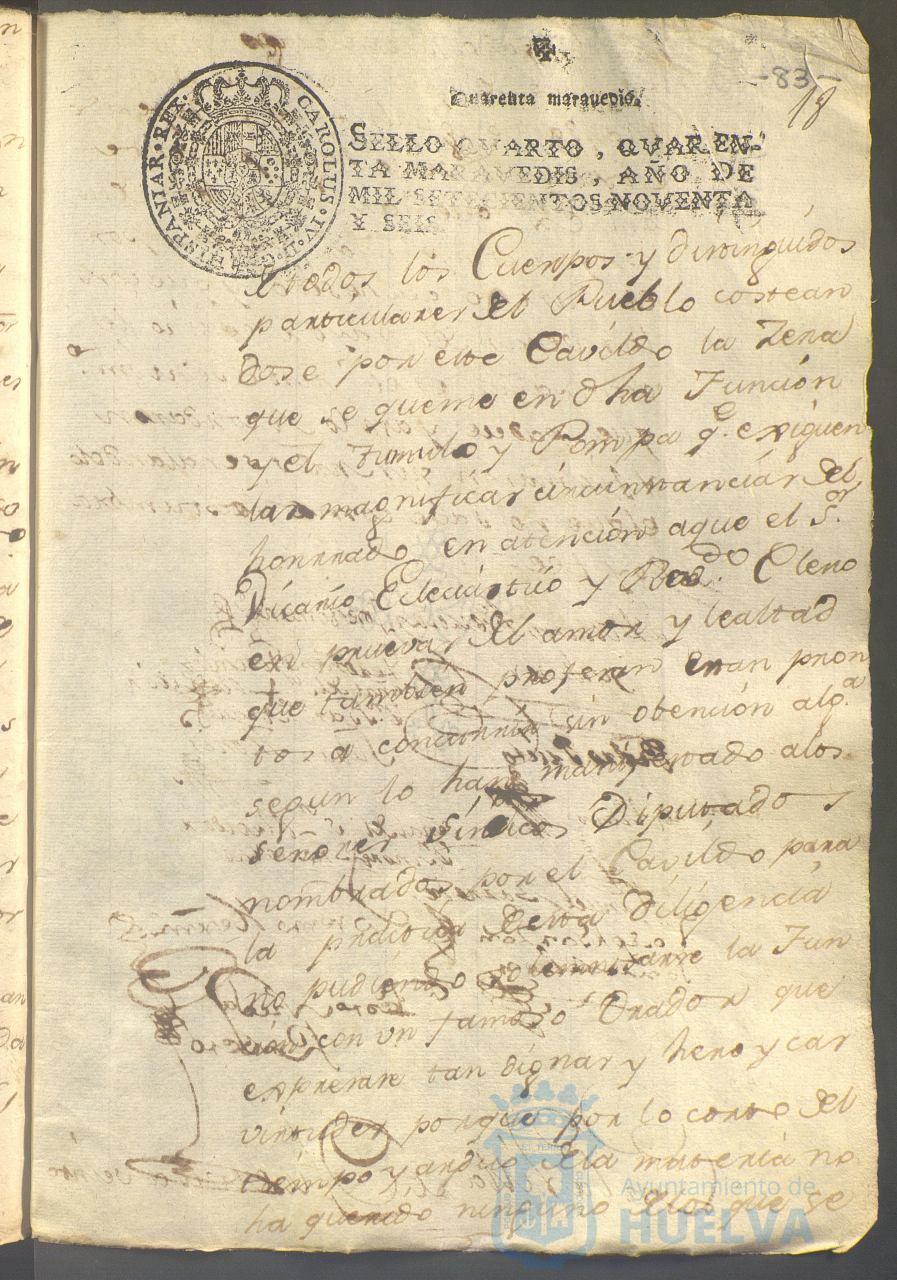 -83-
18
Quarenta maravedis.
SELLO QVARTO, QVAREN-
TA MARAVEDIS, AÑO DE
MIL SETECIENTOS NOVENTA
Y SEIS
CAROLUS·IV·D·G·HISPANIAR·REX·
â todos los Cuerpos y distinguidos
particulares del Pueblo costean
dose por este Cavildo la Zera
que se queme en dha Función
y el Tumulo y Pompa q.e exiguen
las magnificas circunstancias del
honrrado en atención aque el S.or
Vicario Ecleciastico y Rdo. Clero
en prueva del amor y lealtad
que tambien profesan estan pron
tos a concurrir sin obención alg.a
segun lo han manifestado alos
señores Síndicos Diputados
nombrados por el Cavildo para
la práctica de esta Diligencia
no pudiendo solemnisarse la Fun
ción con un famoso Orador que
exprerare tan dignas y heroycas
virtudes porque por lo corto del
tiempo y arduo dela materia no
ha querido ninguno delos que se
Ayuntamiento de
HUELVA